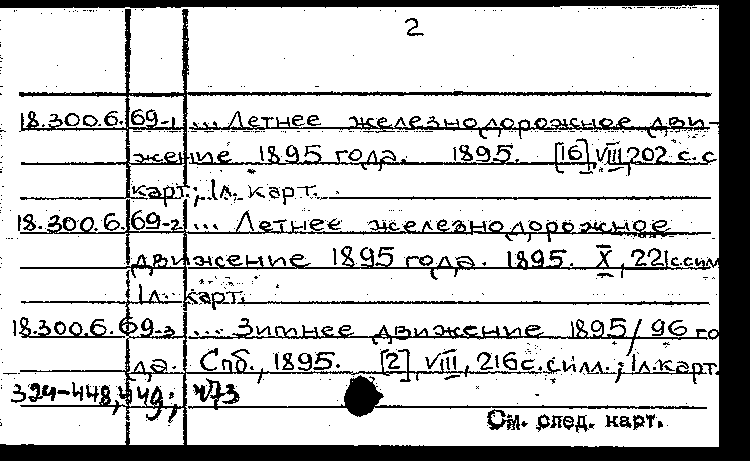 2
18.300.6.69-1 ... Летнее железнодорожное дви-
жение 1895 года. 1895. [16], VIII, 202 с. с
карт.; 1л. карт.
18.300.6.69-2 ... Летнее железнодорожное
движение 1895 года. 1895. X, 221с. с илл
1л. карт.
18.300.6.69-3 ... Зимнее движение 1895/96 го
да. Спб., 1895. [2], VIII, 216с. с илл.; 1л. карт.
394-448, 449; 473
См. след. карт.